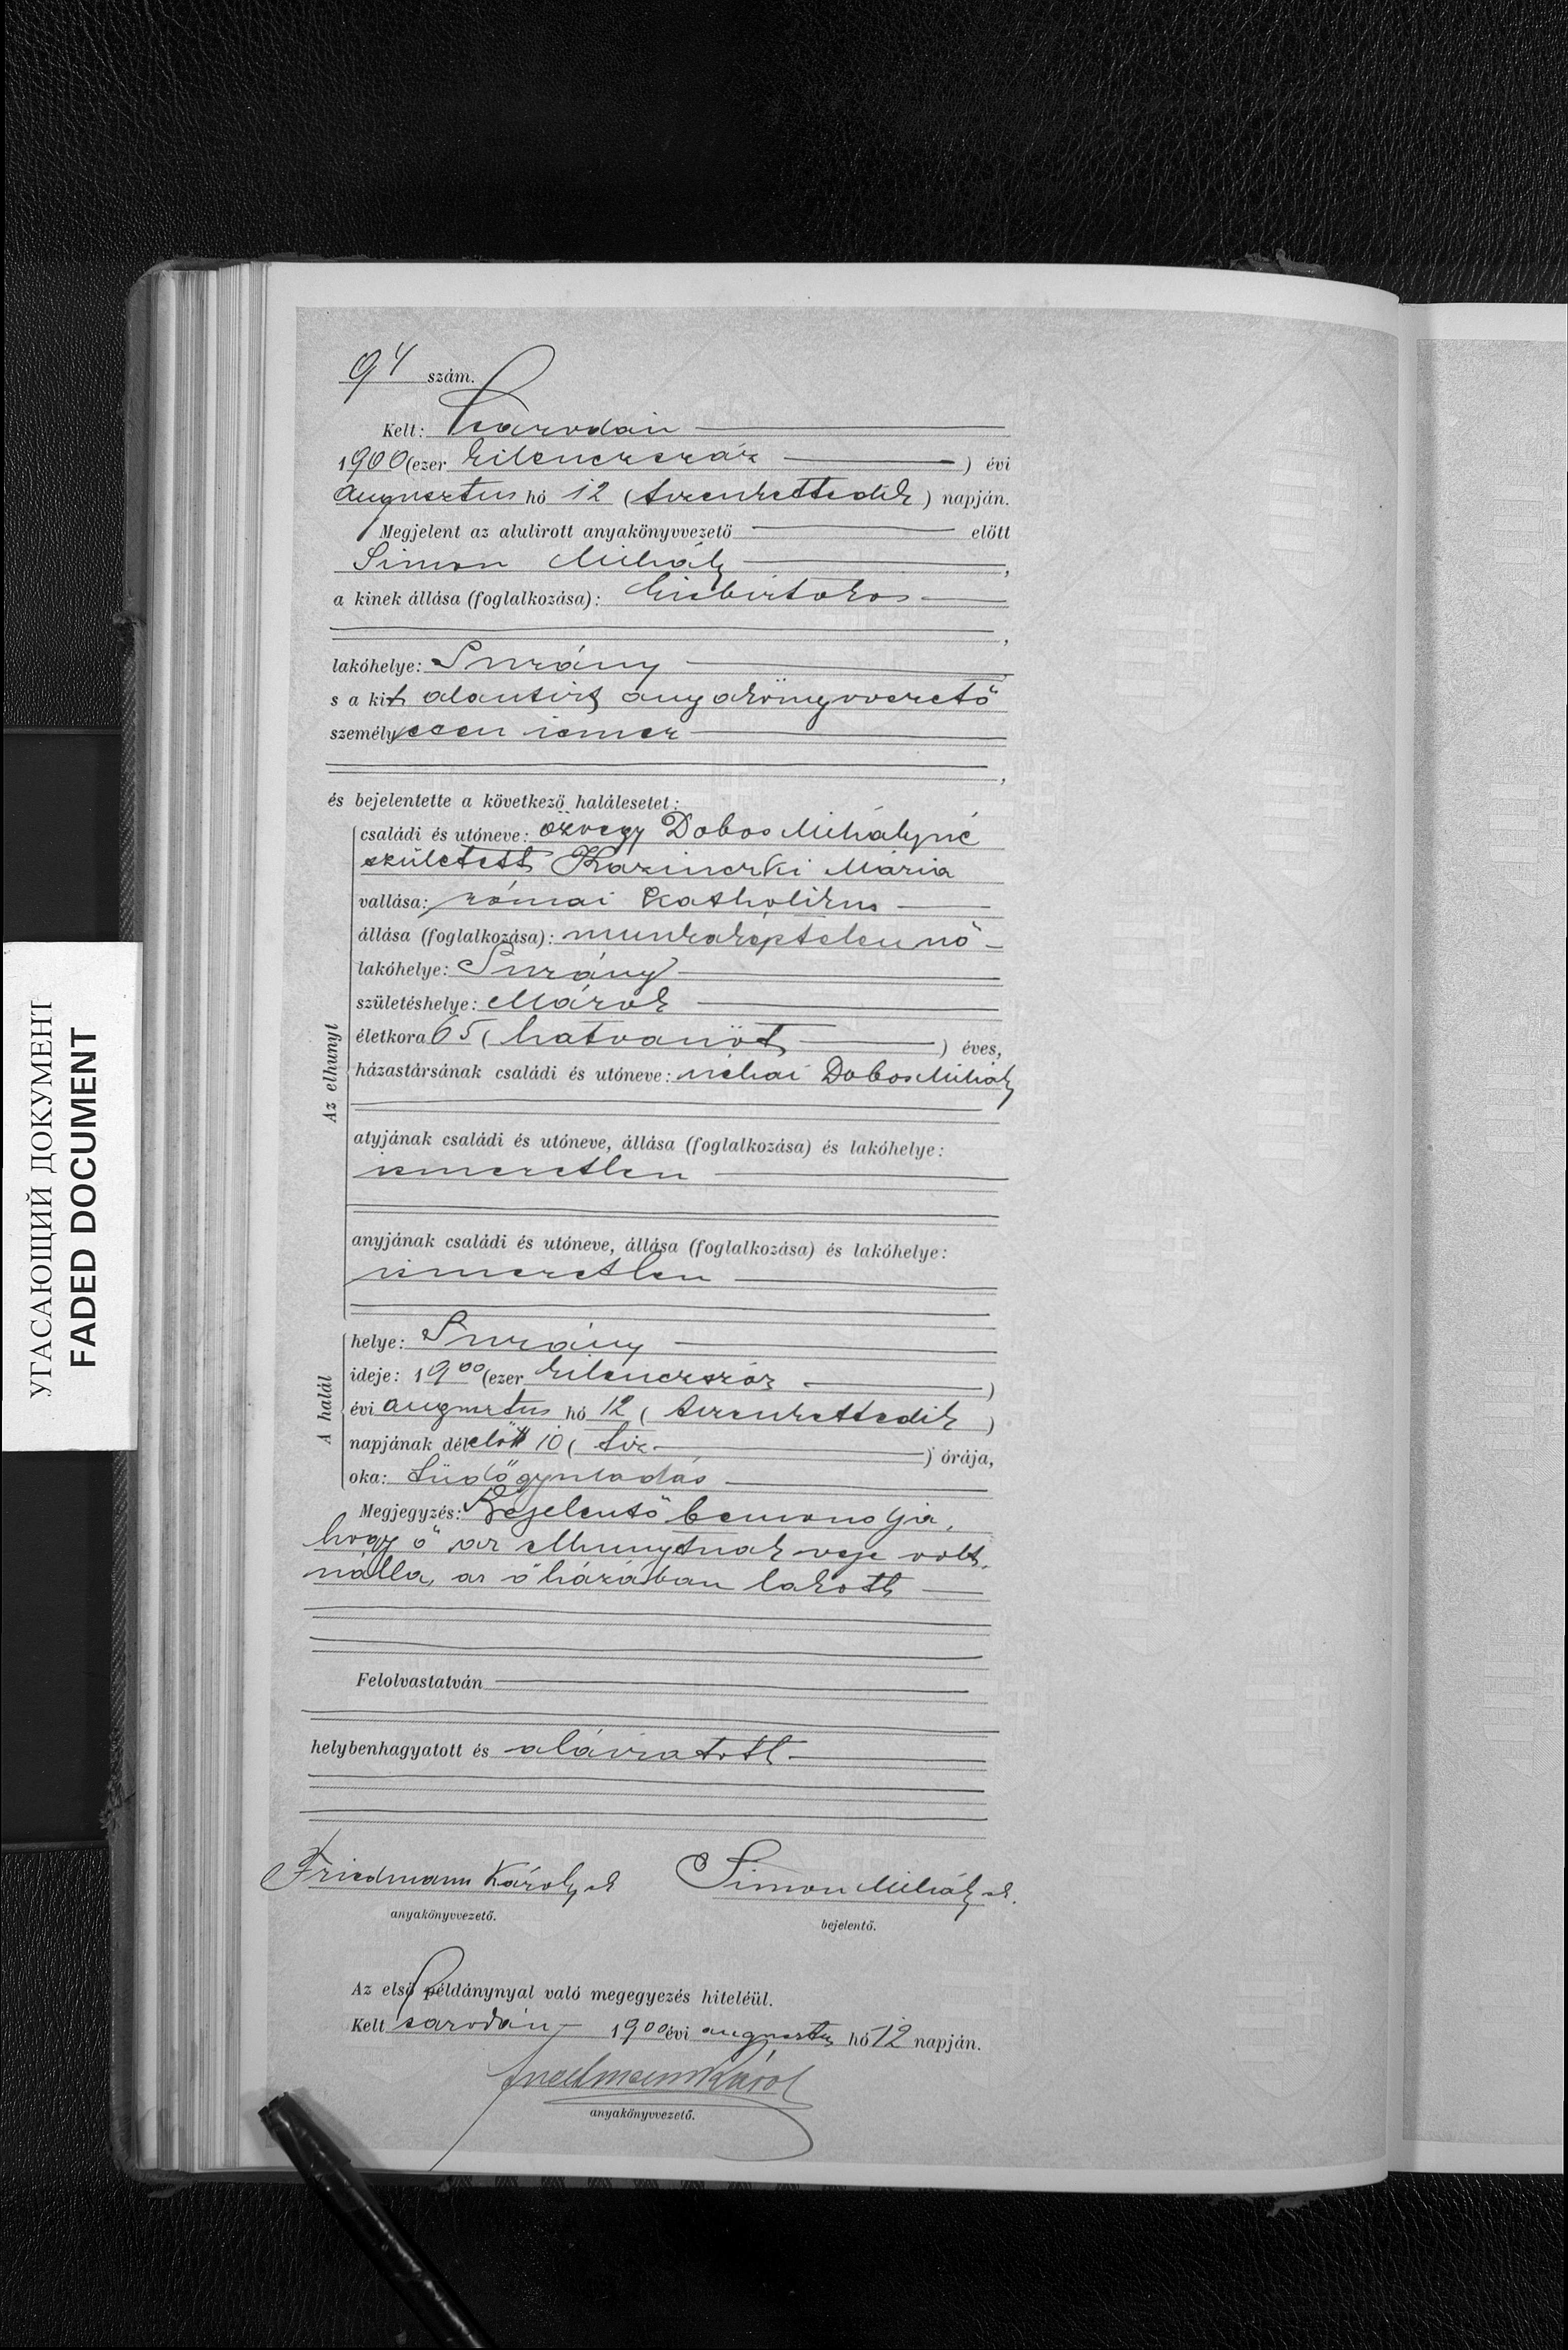 94 szám.
Kelt: Csarodán
1900 (ezer kilenczszáz) évi
augusztus hó 12 (tizenkettedik) napján.
Megjelent az alulirott anyakönyvvezető előtt
Simon Mihály,
a kinek állása (foglalkozása): kisbirtokos
,
lakóhelye: Surány
s a kit alantirt anyakönyvvezető
személyesen ismer
,
és bejelentette a következő halálesetet:
Az elhunyt
családi és utóneve: özvegy Dobos Mihályné
született Kazinczki Mária
vallása: római katholikus
állása (foglalkozása): munkaképtelen nő
lakóhelye: Surány
születéshelye: Márok
életkora 65 (hatvanöt) éves,
házastársának családi és utóneve: néhai Dobos Mihály
atyjának családi és utóneve, állása (foglalkozása) és lakóhelye:
ismeretlen
anyjának családi és utóneve, állása (foglalkozása) és lakóhelye:
ismeretlen
A halál
helye: Surány
ideje: 1900 (ezer kilenczszáz)
évi augusztus hó 12 (tizenkettedik)
napjának délelőtt 10 (tiz) órája,
oka: Tüdőgyuladás
Megjegyzés: Bejelentő bemondja,
hogy ő az elhunytnak veje volt,
nálla, az ő házában lakott
Felolvastatván
helybenhagyatott és aláiratott.
Friedmann Károly sk Simon Mihály sk.
anyakönyvvezető. bejelentő.
Az első példánynyal való megegyezés hiteléül.
Kelt Csarodán 1900 évi augusztus hó 12 napján.
Friedmann Károly
anyakönyvvezető.
УГАСАЮЩИЙ ДОКУМЕНТ
FADED DOCUMENT